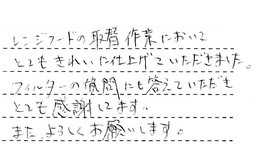 レンジフードの取替作業において
とてもきれいに仕上げていただきました。
フィルターの質問にも答えていただき
とても感謝してます。
また、よろしくお願いします。